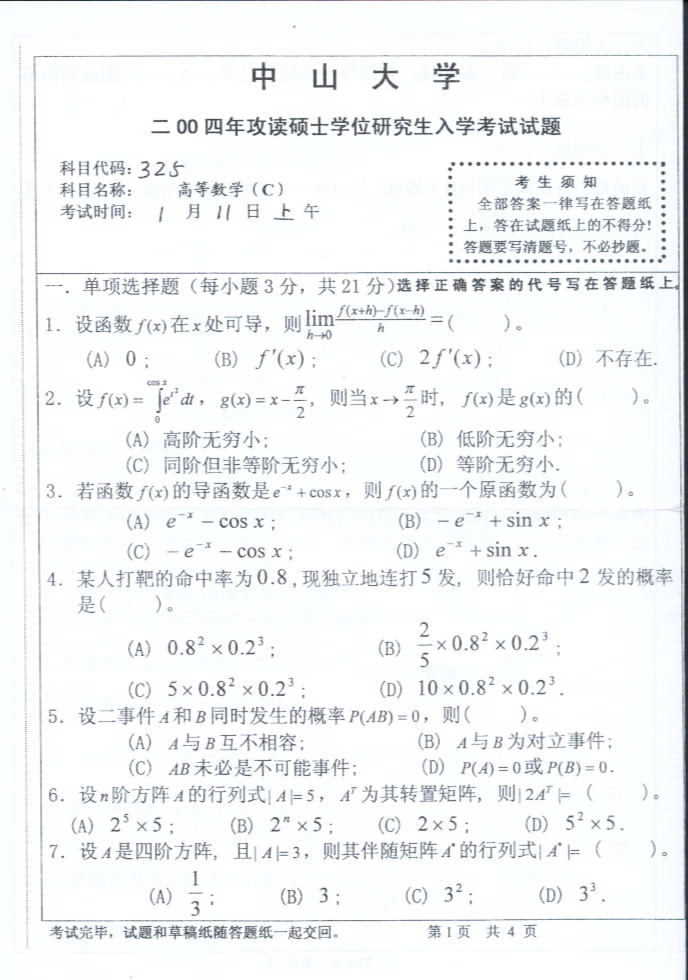 中 山 大 学
二00四年攻读硕士学位研究生入学考试试题
科目代码: 325
科目名称: 高等数学(C)
考试时间: 1 月 11 日 上 午
考 生 须 知
全部答案一律写在答题纸
上，答在试题纸上的不得分!
答题要写清题号，不必抄题。
一．单项选择题（每小题3分，共21分）选择正确答案的代号写在答题纸上。
1．设函数 f(x) 在 x 处可导，则 lim_{h→0} \frac{f(x+h)-f(x-h)}{h} =(  )。
(A) 0； (B) f′(x)； (C) 2f′(x)； (D) 不存在.
2．设 f(x) = ∫_0^{cos x} e^{t^2} dt，g(x) = x - \frac{π}{2}，则当 x → \frac{π}{2} 时，f(x) 是 g(x) 的(  )。
(A) 高阶无穷小; (B) 低阶无穷小;
(C) 同阶但非等阶无穷小; (D) 等阶无穷小.
3．若函数 f(x) 的导函数是 e^{-x} + cos x，则 f(x) 的一个原函数为(  )。
(A) e^{-x} - cos x； (B) - e^{-x} + sin x；
(C) - e^{-x} - cos x； (D) e^{-x} + sin x .
4．某人打靶的命中率为 0.8 , 现独立地连打 5 发，则恰好命中 2 发的概率
是(  )。
(A) 0.8^2 × 0.2^3； (B) \frac{2}{5} × 0.8^2 × 0.2^3；
(C) 5 × 0.8^2 × 0.2^3； (D) 10 × 0.8^2 × 0.2^3 .
5．设二事件 A 和 B 同时发生的概率 P(AB) = 0，则(  )。
(A) A 与 B 互不相容; (B) A 与 B 为对立事件;
(C) AB 未必是不可能事件; (D) P(A) = 0 或 P(B) = 0 .
6．设 n 阶方阵 A 的行列式 | A |= 5，A^T 为其转置矩阵，则 | 2A^T |= (  )。
(A) 2^5 × 5； (B) 2^n × 5； (C) 2 × 5； (D) 5^2 × 5 .
7．设 A 是四阶方阵，且 | A |= 3，则其伴随矩阵 A^* 的行列式 | A^* |= (  )。
(A) \frac{1}{3}； (B) 3； (C) 3^2； (D) 3^3 .
考试完毕，试题和草稿纸随答题纸一起交回。 第 1 页 共 4 页